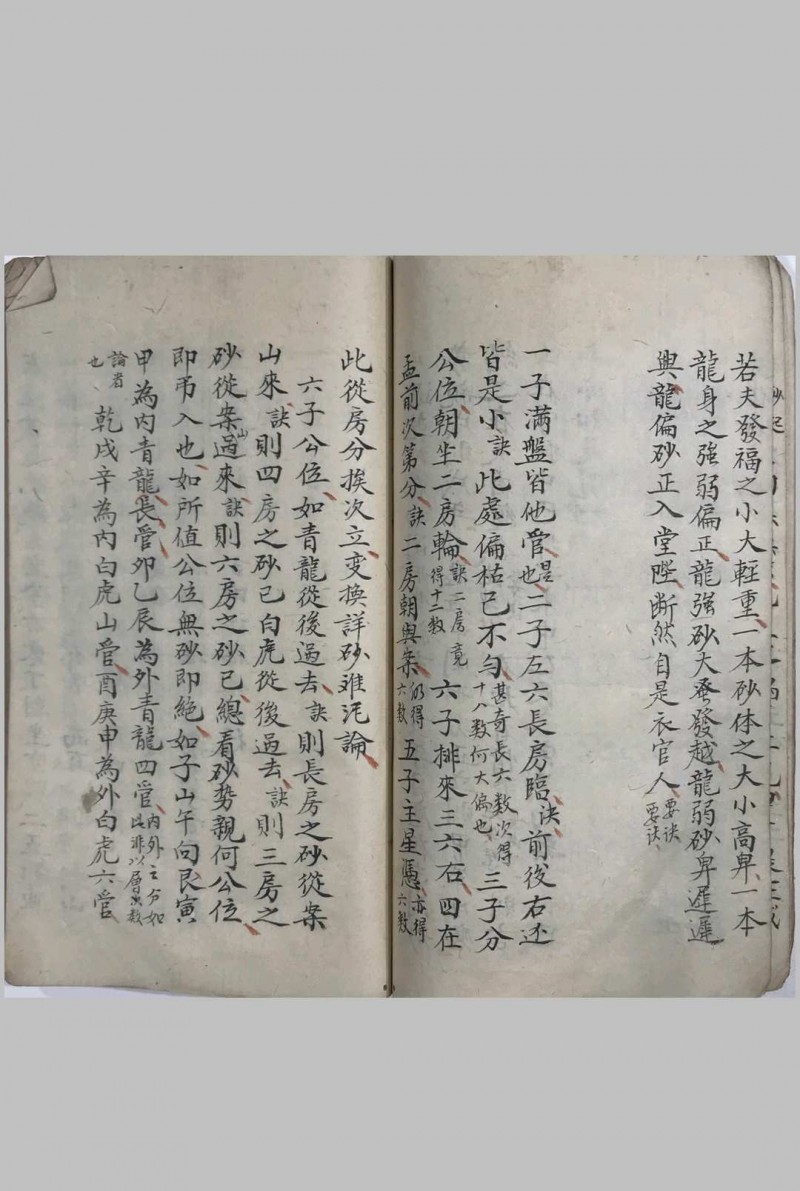 若夫發福之小大輕重一本砂体之大小高卑一本
龍身之強弱偏正龍強砂大蚤發越龍弱砂卑遲遲
與龍偏砂正入堂陛断然自是衣官人要诀要诀
一子滿盤皆他管是也二子左六長房臨诀前後右还
皆是小訣此處偏枯已不勻甚奇長六数次得十八数何大偏也三子分
公位朝坐二房輪訣二房竟得十二数六子排來三六右四在
孟前次第分訣二房朝與案仍得六数五子主星憑亦得六数
此從房分挨次立变換詳砂难泥論
六子公位如青龍從後過去訣則長房之砂從案
山來訣則四房之砂已白虎從後過去訣則三房之
砂從案山過來訣則六房之砂已總看砂势親何公位
即吊入也如所值公位無砂即絶如子山午向艮寅
甲為内青龍長管卯乙辰為外青龍四管内外之分如此非以層数
論者也乾戌辛為内白虎山管酉庚申為外白虎六管